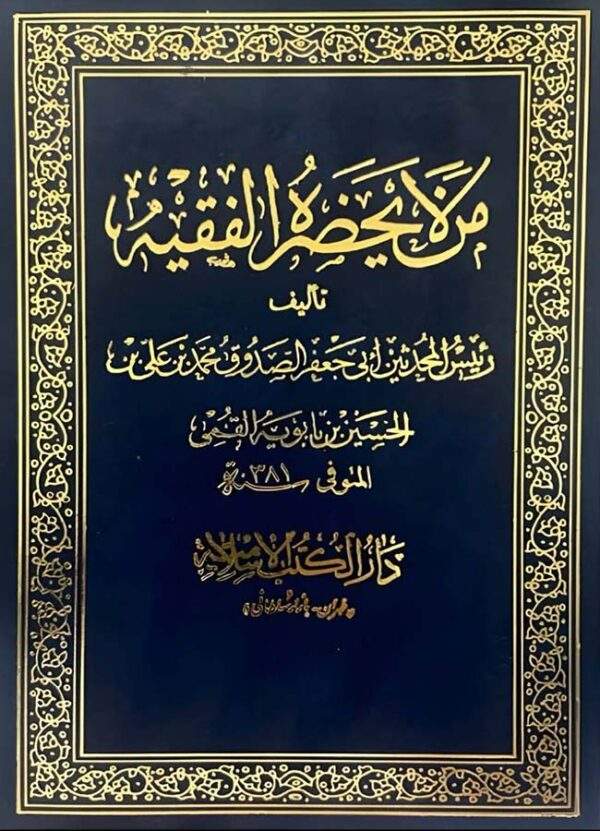 من لا يحضره الفقيه
تأليف
رئيس المحدثين أبي جعفر الصدوق محمد بن علي بن
الحسين بن بابويه القمي
المتوفى سنة ٣٨١
دار الكتب الإسلامية
تهران - بازار سلطاني